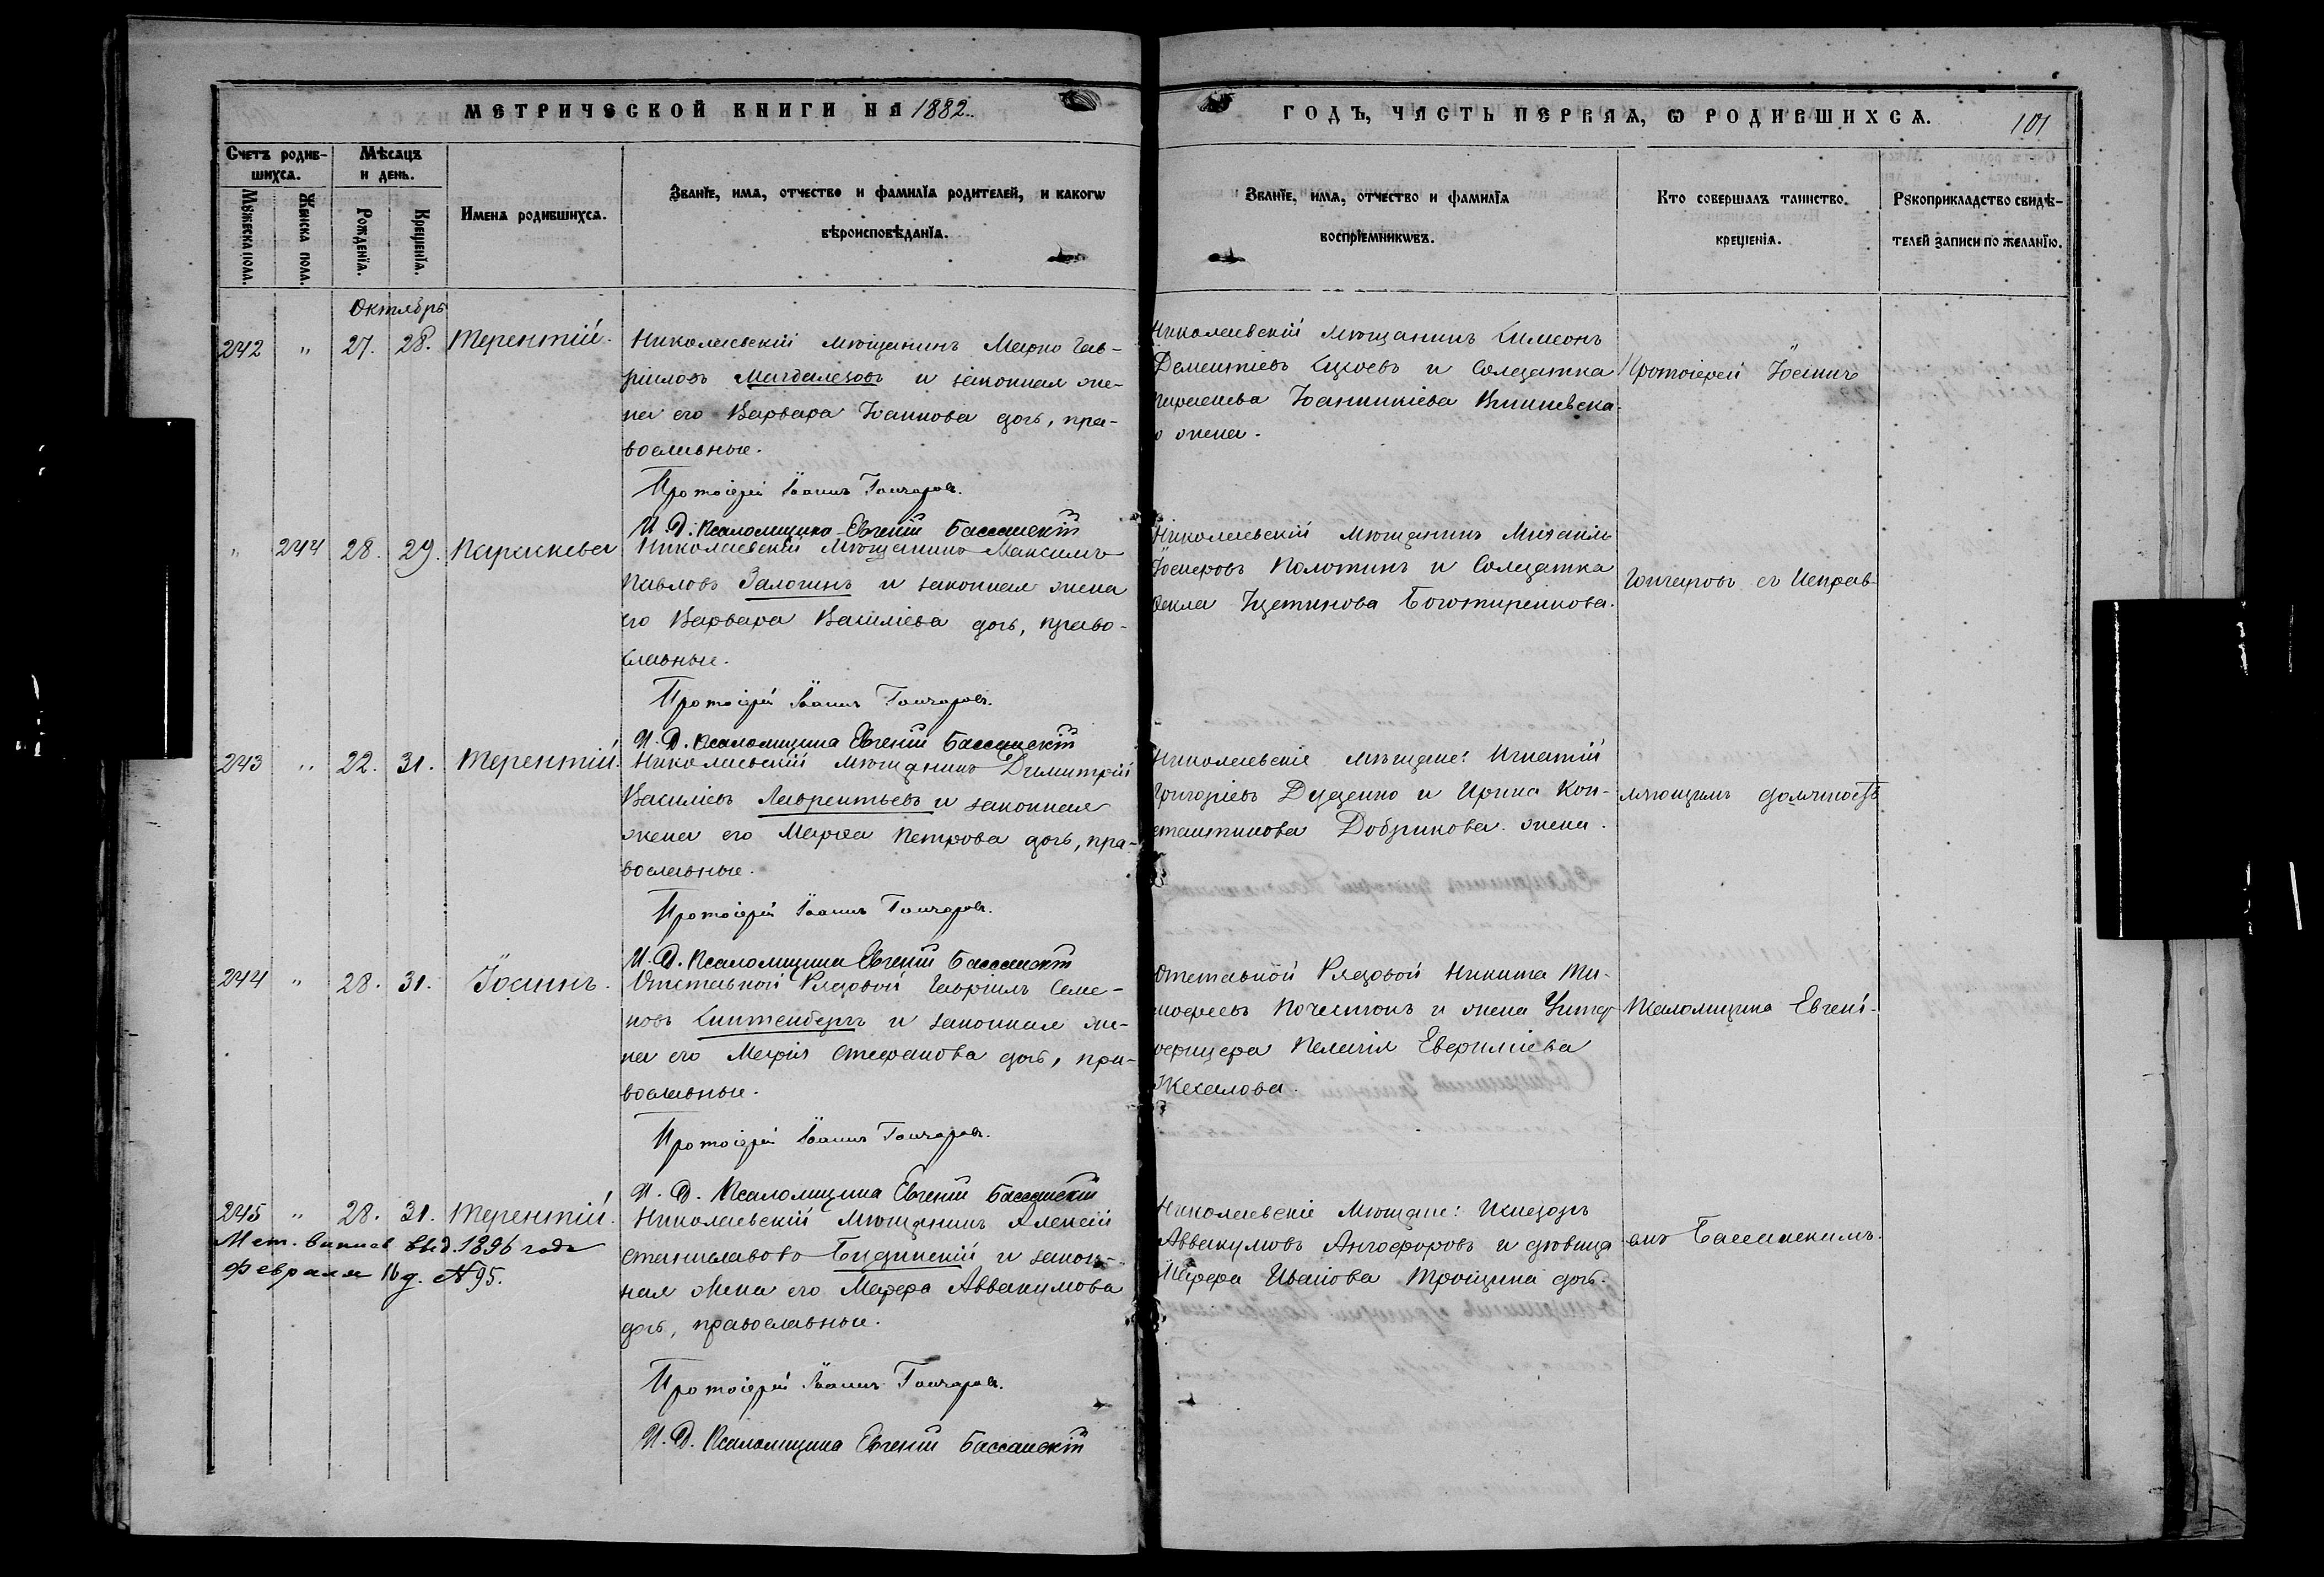 МЕТРИЧЕСКОЙ КНИГИ НА 1882
ГОДЪ, ЧАСТЬ ПЕРВАЯ, Ѡ РОДИВШИХСѦ.
101
Счетъ родив-
шихсѧ.
Мѣсѧцъ
и день.
Мꙋжеска пола.
Женска пола.
Рожденїѧ.
Крещенїѧ.
Имена родившихсѧ.
Званїе, имѧ, отчество и фамилїѧ родителей, и какогѡ
вѣроисповѣданїѧ.
Званїе, имѧ, отчество и фамилїѧ
воспрїемникѡвъ.
Кто совершалъ таинство
крещенїѧ.
Рꙋкоприкладство свидѣ-
телей записи по желанїю.
Октябрь
242 " 27. 28. Терентій.
Николаевскій мѣщанинъ Марко Гав-
ріиловъ Магдалезовъ и законная же-
на его Варвара Іоаннова дочь, пра-
вославные.
Протоіерей Іоаннъ Гончаровъ.
И. Д. Псаломщика Евгеній Бассанскій
Николаевскій мѣщанинъ Симеонъ
Дементіевъ и Солдатка
Іоанникіева
жена.
Протоіерей Іоаннъ
" 244 28. 29. Параскева
Николаевскій мѣщанинъ Максимъ
Павловъ Залогинъ и законная жена
его Варвара Василіева дочь, право-
славные.
Протоіерей Іоаннъ Гончаровъ.
И. Д. Псаломщика Евгеній Бассанскій
Николаевскій мѣщанинъ Михаилъ
Полотинъ и Солдатка
Текла
Гончаровъ съ Исправ-
243 " 22. 31. Терентій.
Николаевскій мѣщанинъ Димитрій
Василіевъ Лаврентьевъ и законная
жена его Марѳа Петрова дочь, пра-
вославные.
Протоіерей Іоаннъ Гончаровъ.
И. Д. Псаломщика Евгеній Бассанскій
Николаевскіе мѣщане: Игнатій
Григоріевъ Дуденко и Ирина Кон-
стантинова Добрикова жена.
ляющимъ должность
244 " 28. 31. Іоаннъ.
Отставной Рядовой Гавріилъ Семе-
новъ и законная же-
на его Марія Стефанова дочь, пра-
вославные.
Протоіерей Іоаннъ Гончаровъ.
И. Д. Псаломщика Евгеній Бассанскій
Отставной Рядовой Никита Ти-
моѳеевъ и жена Унтер
офицера Пелагія
Жекалова.
Псаломщика Евгені-
245 " 28. 31. Терентій.
Мет. выпись выд. 1896 года
Февраля 16 д. № 95.
Николаевскій мѣщанинъ Алексій
Станиславовъ Будзинскій и закон-
ная жена его Марѳа Аввакумова
дочь, православные.
Протоіерей Іоаннъ Гончаровъ.
И. Д. Псаломщика Евгеній Бассанскій
Николаевскіе Мѣщане: Исидоръ
Аввакумовъ Ангофоровъ и дѣвица
Марѳа Иванова Трощина дочь.
емъ Бассанскимъ.